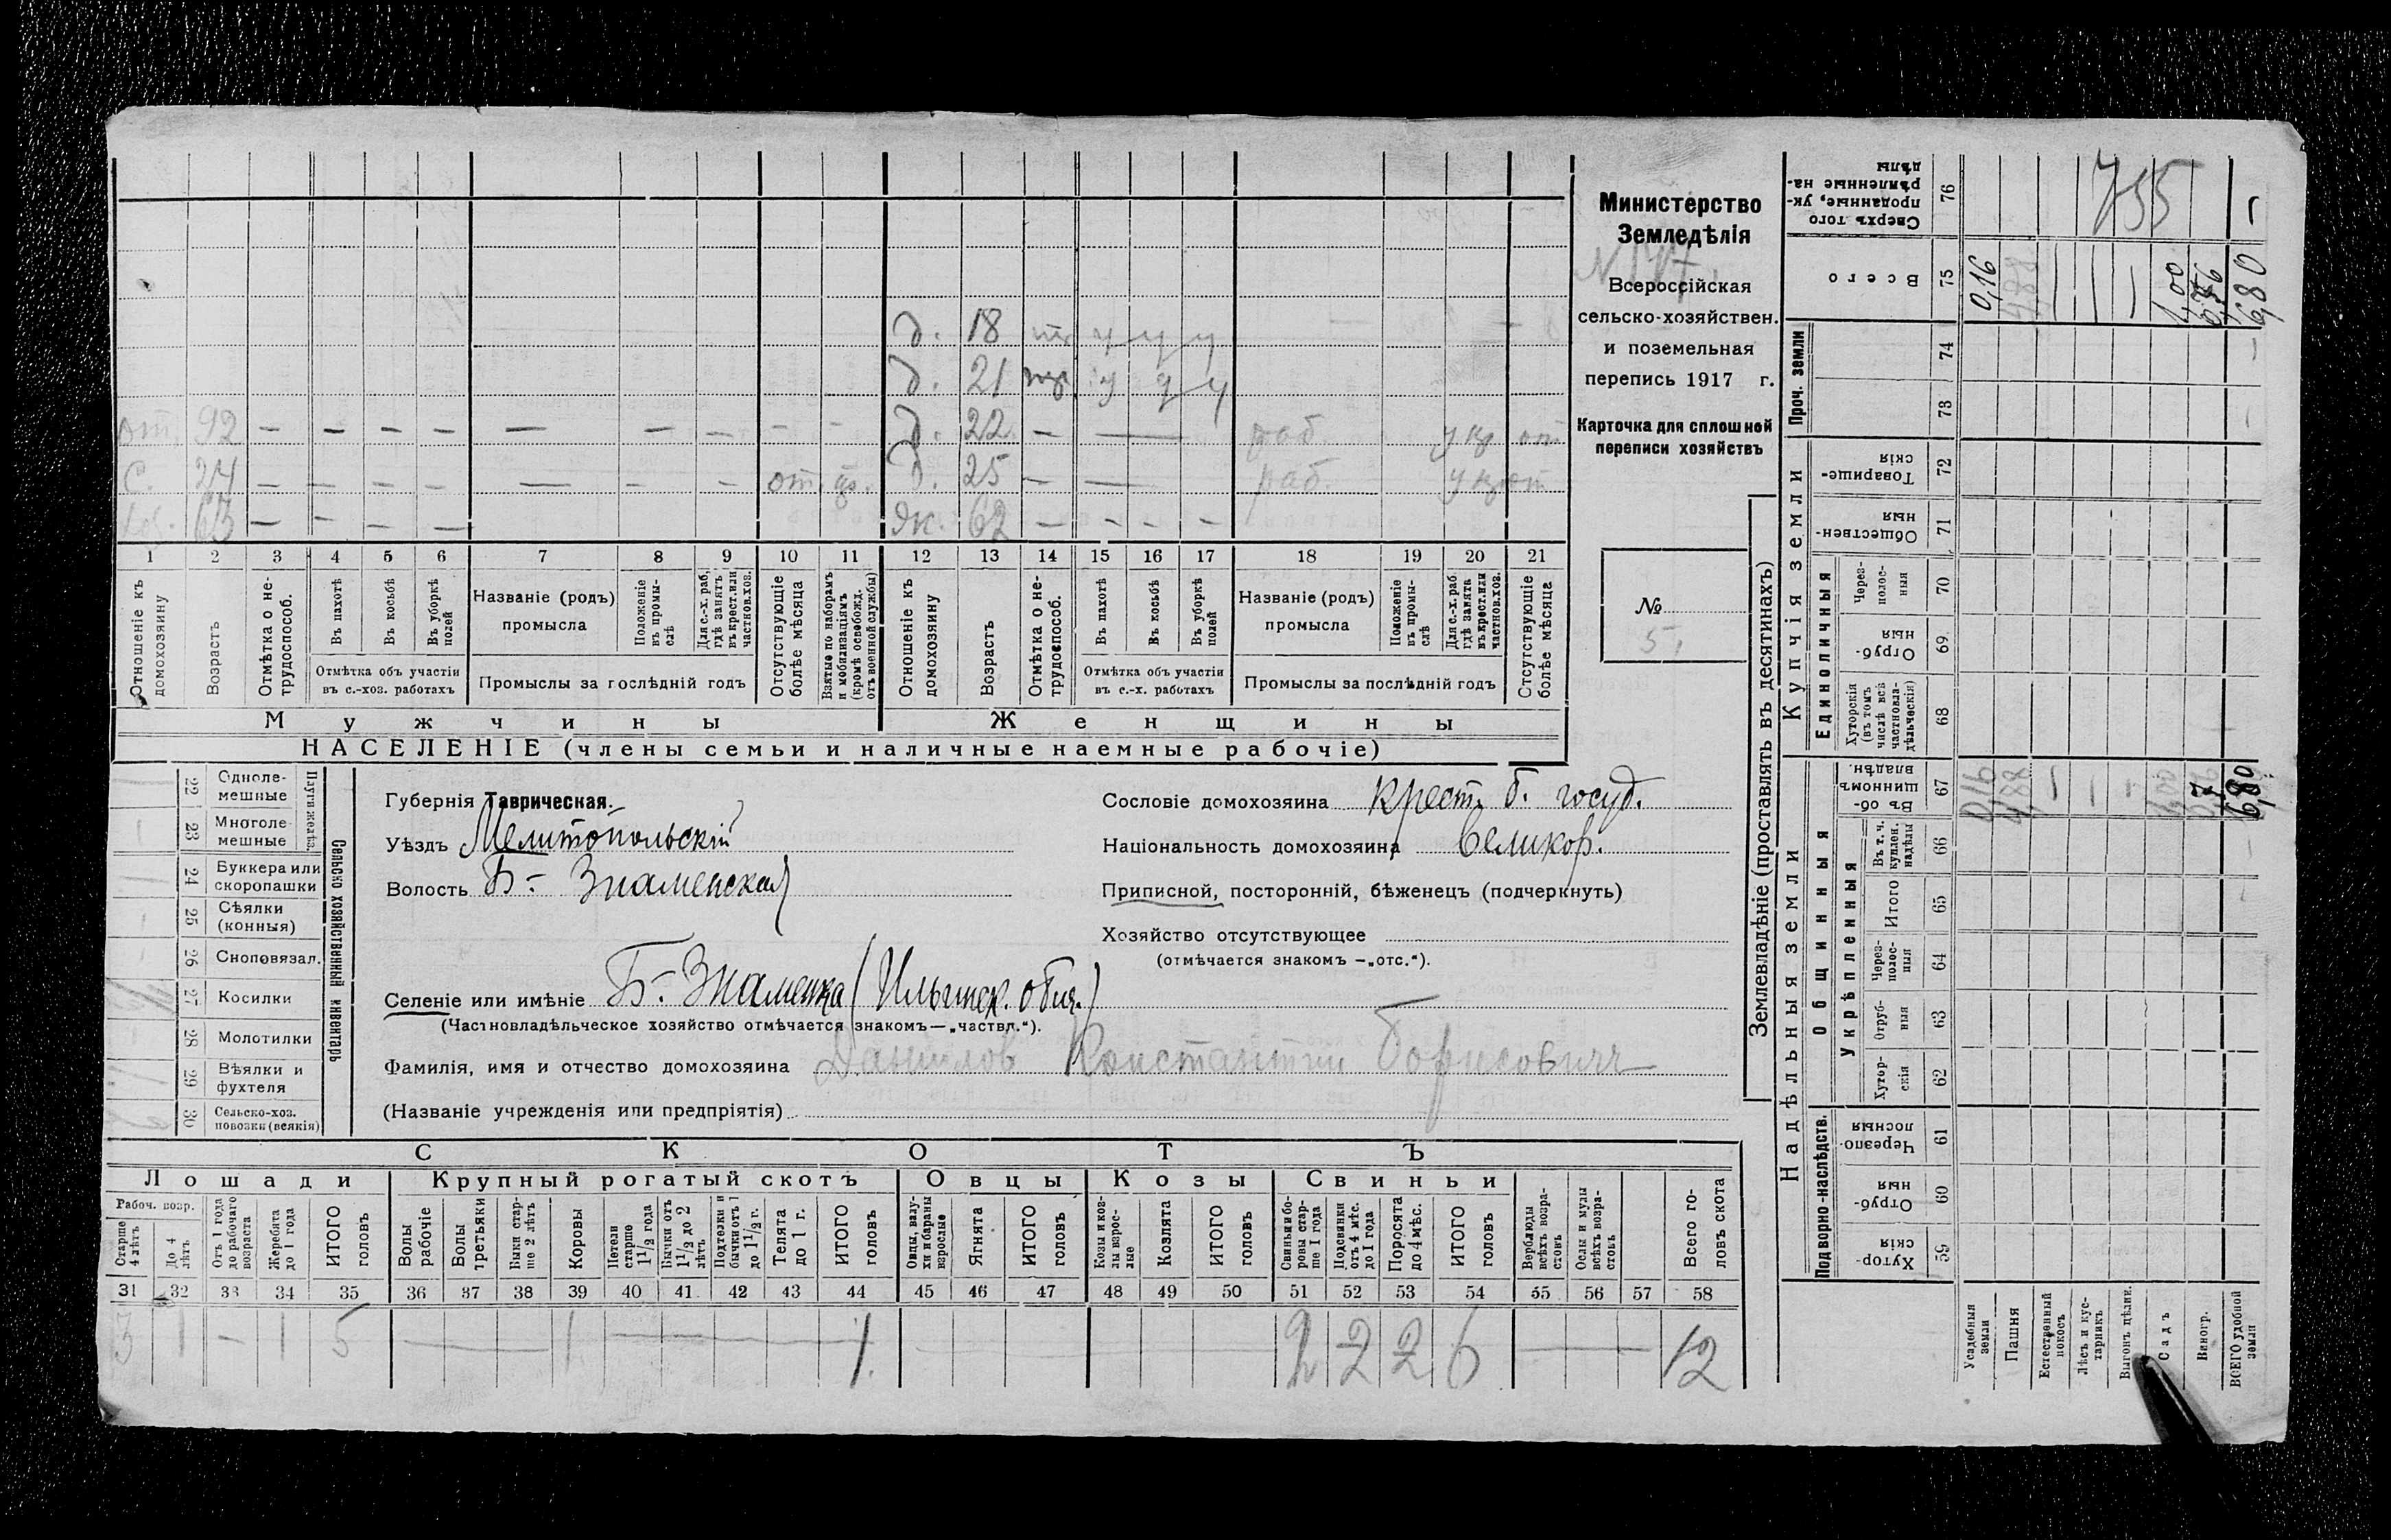 д. 18 т. у у у
д. 21 у у у
от. 92 — — — — — — — - - д. 22 — — раб. у кр от
с. 24 — — — — — — — от. д. 25 — — раб. у кр от
63 — — — — эк. 62 — — — —
1 2 3 4 5 6 7 8 9 10 11 12 13 14 15 16 17 18 19 20 21
Отношеніе къ домохозяину
Возрастъ
Отмѣтка о не-трудоспособ.
Въ пахотѣ
Въ косьбѣ
Въ уборкѣ полей
Отмѣтка объ участіи въ с.-хоз. работахъ
Названіе (родъ) промысла
Положеніе въ промы-слѣ
Для с.-х. раб. гдѣ занятъ въ крест. или частнов. хоз.
Промыслы за послѣдній годъ
Отсутствующіе болѣе мѣсяца
Взятые по наборамъ и мобилизаціямъ (кромѣ освобожд. отъ военной службы)
Отношеніе къ домохозяину
Возрастъ
Отмѣтка о не-трудоспособ.
Въ пахотѣ
Въ косьбѣ
Въ уборкѣ полей
Отмѣтка объ участіи въ с.-х. работахъ
Названіе (родъ) промысла
Положеніе въ промы-слѣ
Для с.-х. раб. гдѣ занята въ крест. или частнов. хоз.
Промыслы за послѣдній годъ
Отсутствующіе болѣе мѣсяца
Мужчины Женщины
НАСЕЛЕНІЕ (члены семьи и наличные наемные рабочіе)
Министерство
Земледѣлія
Всероссійская
сельско-хозяйствен.
и поземельная
перепись 1917 г.
Карточка для сплошной
переписи хозяйствъ
№
5.
22 Одноле-мешные
23 Многоле-мешные
Плуги желѣз.
24 Буккера или скоропашки
25 Сѣялки (конныя)
26 Сноповязал.
27 Косилки
28 Молотилки
29 Вѣялки и фухтеля
30 Сельско-хоз. повозки (всякія)
Сельско хозяйственный инвентарь
Губернія Таврическая.
Уѣздъ Мелитопольскій
Волость Б- Знаменская
Сословіе домохозяина крест. б. госуд.
Національность домохозяина Великор.
Приписной, посторонній, бѣженецъ (подчеркнуть)
Хозяйство отсутствующее
(отмѣчается знакомъ —„отс.“).
Селеніе или имѣніе Б.- Знаменка (Ильинск. общ.)
(Частновладѣльческое хозяйство отмѣчается знакомъ—„частвл.“).
Фамилія, имя и отчество домохозяина Данилов Константин Борисович
(Названіе учрежденія или предпріятія)
СКОТЪ
Лошади Крупный рогатый скотъ Овцы Козы Свиньи
Рабоч. возр.
Старше 4 лѣтъ
До 4 лѣтъ
Отъ 1 года до рабочаго возраста
Жеребята до 1 года
ИТОГО головъ
Волы рабочіе
Волы третьяки
Быки стар-ше 2 лѣтъ
Коровы
Нетели старше 1½ года
Бычки отъ 1½ до 2 лѣтъ
Подтелки и бычки отъ 1 до 1½ г.
Телята до 1 г.
ИТОГО головъ
Овцы, валу-хи и бараны взрослые
Ягнята
ИТОГО головъ
Козы и коз-лы взрос-лые
Козлята
ИТОГО головъ
Свиньи и бо-ровы стар-ше 1 года
Подсвинки отъ 4 мѣс. до 1 года
Поросята до 4 мѣс.
ИТОГО головъ
Верблюды всѣхъ возра-стовъ
Ослы и мулы всѣхъ возра-стовъ
Всего го-ловъ скота
31 32 33 34 35 36 37 38 39 40 41 42 43 44 45 46 47 48 49 50 51 52 53 54 55 56 57 58
3 1 - 1 5 — 1 — 1. — 2 2 2 6 — 12
Землевладѣніе (проставлять въ десятинахъ)
Сверхъ того проданные, ук-рѣпленные на-дѣлы 76 755 —
Всего 75 0,16 4,88 1,00 0,76 6,80
Проч. земли 74 73
Купчія земли
Товарище-скія 72
Обществен-ныя 71
Единоличныя
Через-полос-ныя 70
Отруб-ныя 69
Хуторскія (въ томъ числѣ всѣ частновла-дѣльческія) 68
Надѣльныя земли
Общинныя
Въ об-щинномъ владѣн. 67 0,16 4,88 — — — 1,00 6,80
Укрѣпленныя
Въ т. ч. куплен. надѣлы 66
Итого 65
Через-полос-ныя 64
Отруб-ныя 63
Хутор-скія 62
Подворно-наслѣдств.
Черезпо-лосныя 61
Отруб-ныя 60
Хутор-скія 59
Усадебныя земли
Пашня
Естественный покосъ
Лѣсъ и кус-тарникъ
Выгонъ цѣлин.
Садъ
Виногр.
ВСЕГО удобной земли